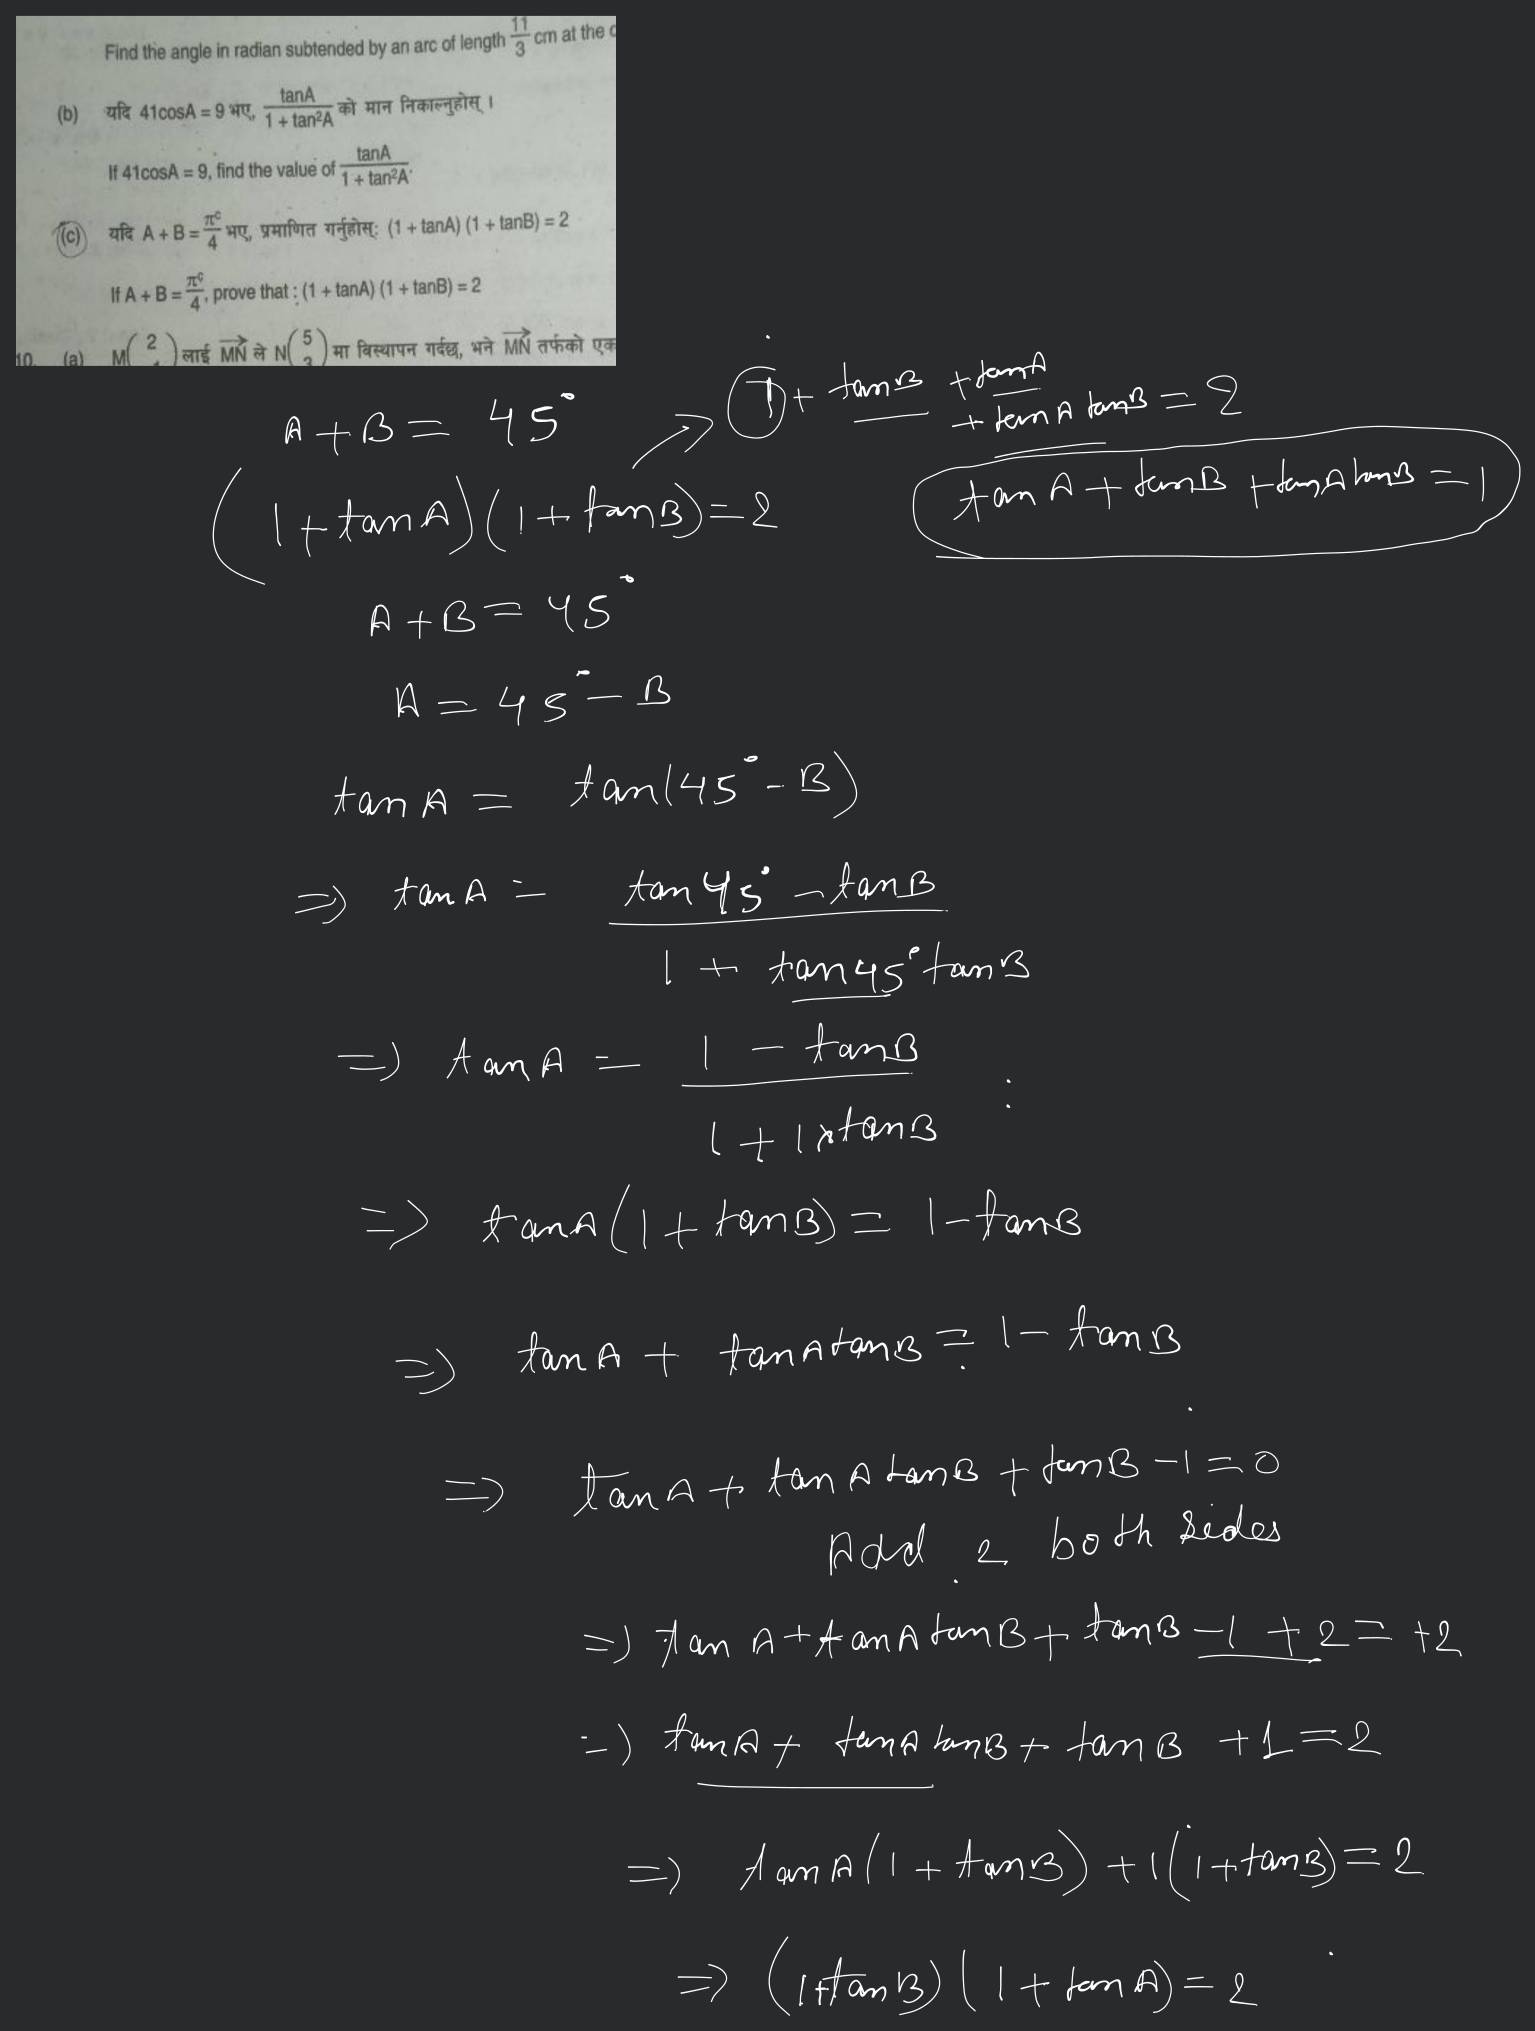 Find the angle in radian subtended by an arc of length 11/3 cm at the c
(b) यदि 41cosA = 9 भए, tanA/(1 + tan²A) को मान निकाल्नुहोस् ।
If 41cosA = 9, find the value of tanA/(1 + tan²A).
(c) यदि A + B = πᶜ/4 भए, प्रमाणित गर्नुहोस्: (1 + tanA) (1 + tanB) = 2
If A + B = πᶜ/4, prove that : (1 + tanA) (1 + tanB) = 2
10. (a) M(2 लाई MN→ ले N(5 मा विस्थापन गर्दछ, भने MN→ तर्फको एक
A + B = 45°
1 + tanB + tanA + tanA tanB = 2
(1 + tanA)(1 + tanB) = 2
tanA + tanB + tanA tanB = 1
A + B = 45°
A = 45° - B
tanA = tan(45° - B)
=> tanA = (tan45° - tanB)/(1 + tan45° tanB)
=> tanA = (1 - tanB)/(1 + 1×tanB)
=> tanA(1 + tanB) = 1 - tanB
=> tanA + tanA tanB = 1 - tanB
=> tanA + tanA tanB + tanB - 1 = 0
Add 2 both sides
=> tanA + tanA tanB + tanB - 1 + 2 = +2
=> tanA + tanA tanB + tanB + 1 = 2
=> tanA(1 + tanB) + 1(1 + tanB) = 2
=> (1 + tanB)(1 + tanA) = 2